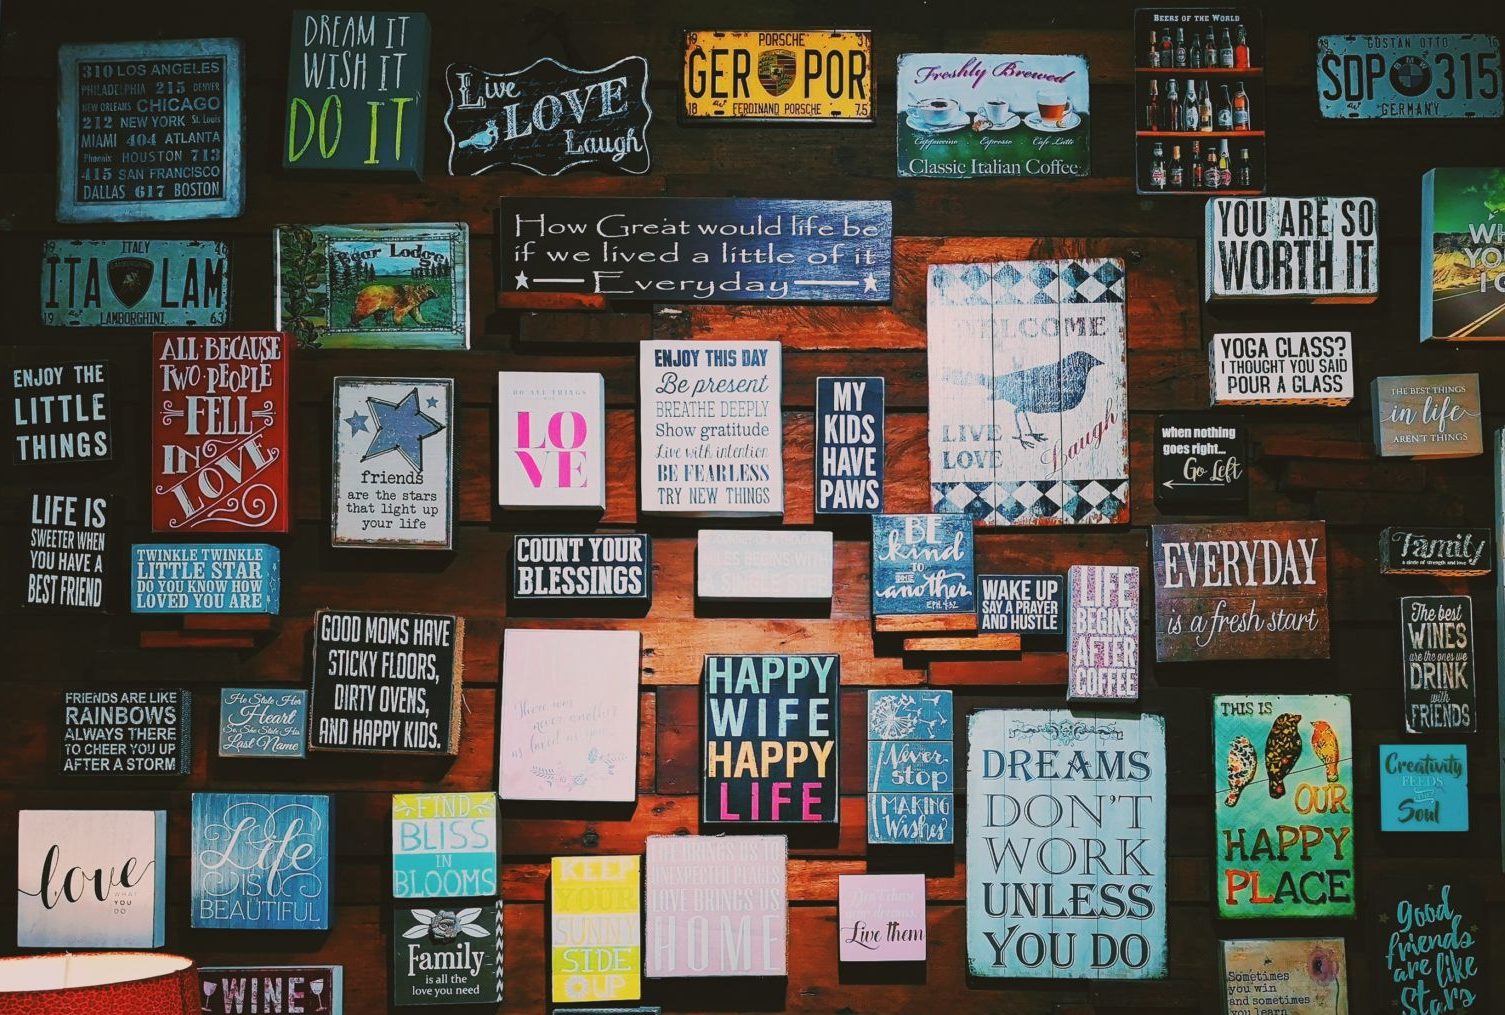 310 LOS ANGELES
PHILADELPHIA 215 DENVER
NEW ORLEANS CHICAGO
212 NEW YORK St. Louis
MIAMI 404 ATLANTA
Phoenix HOUSTON 713
415 SAN FRANCISCO
DALLAS 617 BOSTON
DREAM IT
WISH IT
DO IT
Live
LOVE
Laugh
PORSCHE
GER POR
18 FERDINAND PORSCHE 75
Freshly Brewed
Cappuccino Espresso Cafe Latte
Classic Italian Coffee
BEERS OF THE WORLD
GUSTAN OTTO
SDP BMW 315
GERMANY
ITALY
ITA LAM
19 LAMBORGHINI 63
Bear Lodge
How Great would life be
if we lived a little of it
Everyday
YOU ARE SO
WORTH IT
ENJOY THE
LITTLE
THINGS
ALL BECAUSE
TWO PEOPLE
FELL
IN
LOVE
friends
are the stars
that light up
your life
DO ALL THINGS
LO
VE
ENJOY THIS DAY
Be present
BREATHE DEEPLY
Show gratitude
Live with intention
BE FEARLESS
TRY NEW THINGS
MY
KIDS
HAVE
PAWS
WELCOME
LIVE
LOVE
Laugh
YOGA CLASS?
I THOUGHT YOU SAID
POUR A GLASS
THE BEST THINGS
in life
AREN'T THINGS
when nothing
goes right...
Go Left
LIFE IS
SWEETER WHEN
YOU HAVE A
BEST FRIEND
TWINKLE TWINKLE
LITTLE STAR
DO YOU KNOW HOW
LOVED YOU ARE
COUNT YOUR
BLESSINGS
BE
kind
TO
ONE
another
EPH. 4:32
WAKE UP
SAY A PRAYER
AND HUSTLE
LIFE
BEGINS
AFTER
COFFEE
EVERYDAY
is a fresh start
Family
a circle of strength and love
The best
WINES
are the ones we
DRINK
with
FRIENDS
GOOD MOMS HAVE
STICKY FLOORS,
DIRTY OVENS,
AND HAPPY KIDS.
FRIENDS ARE LIKE
RAINBOWS
ALWAYS THERE
TO CHEER YOU UP
AFTER A STORM
He Stole Her
Heart
So She Stole His
Last Name
There was
never another
as loved as you
HAPPY
WIFE
HAPPY
LIFE
Never
stop
MAKING
Wishes
DREAMS
DON'T
WORK
UNLESS
YOU DO
THIS IS
OUR
HAPPY
PLACE
Creativity
FEEDS
Soul
love
WHAT
YOU
DO
Life
IS
BEAUTIFUL
FIND
BLISS
IN
BLOOMS
Family
is all the
love you need
KEEP
YOUR
SUNNY
SIDE
UP
UNEXPECTED PLACES
LOVE BRINGS US
HOME
Live them
good
friends
are like
Stars
WINE
Sometimes
you win
and sometimes
you learn